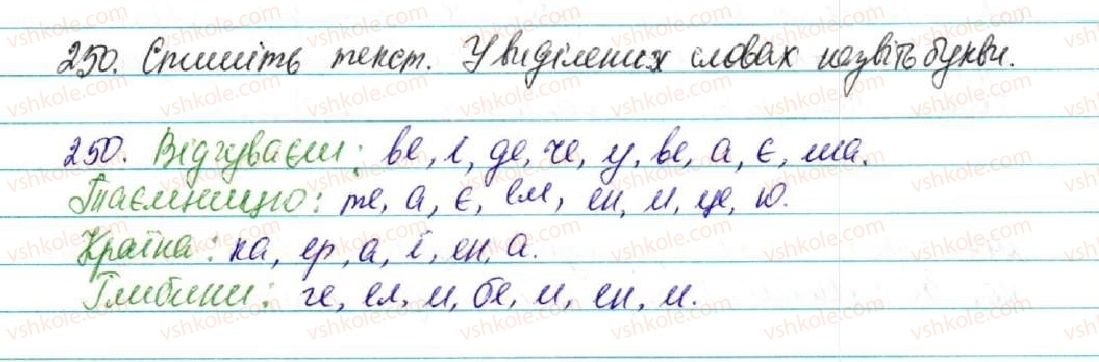 250. Спишіть текст. У виділених словах назвіть букви.
250. Відчуваєш: ве, і, де, че, у, ве, а, є, ша.
Таємницю: те, а, є, ем, ен, и, це, ю.
Країна: ка, ер, а, ї, ен, а.
Глибини: ге, ел, и, бе, и, ен, и.